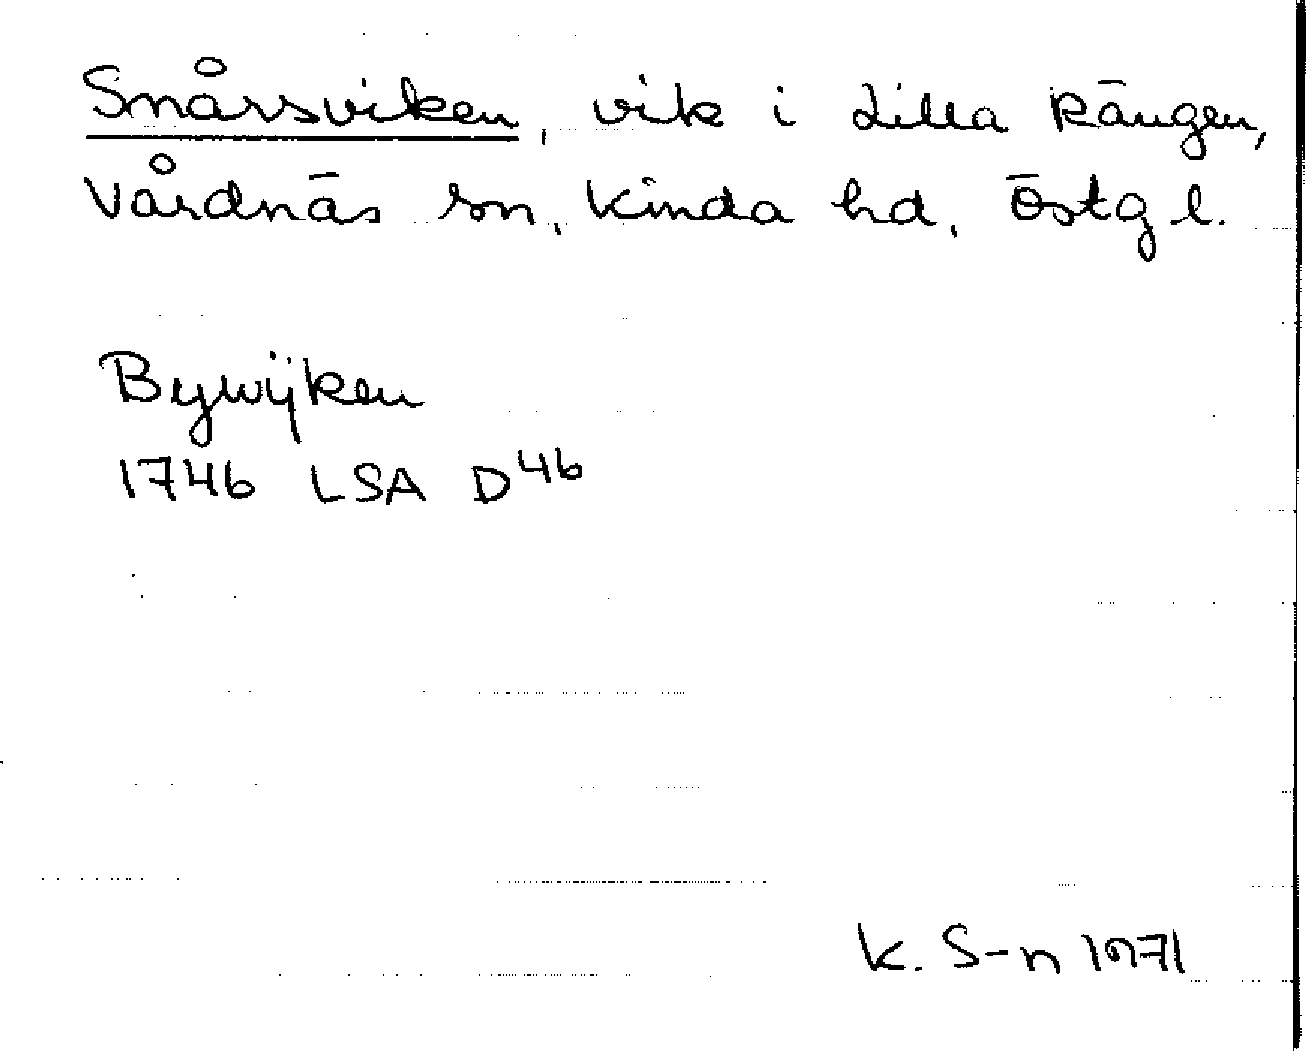 Snårsviken, vik i Lilla Rängen,
Vårdnäs sn, Kinda hd, Östg l.
Bywijken
1746 LSA D46
K. S-n 1971